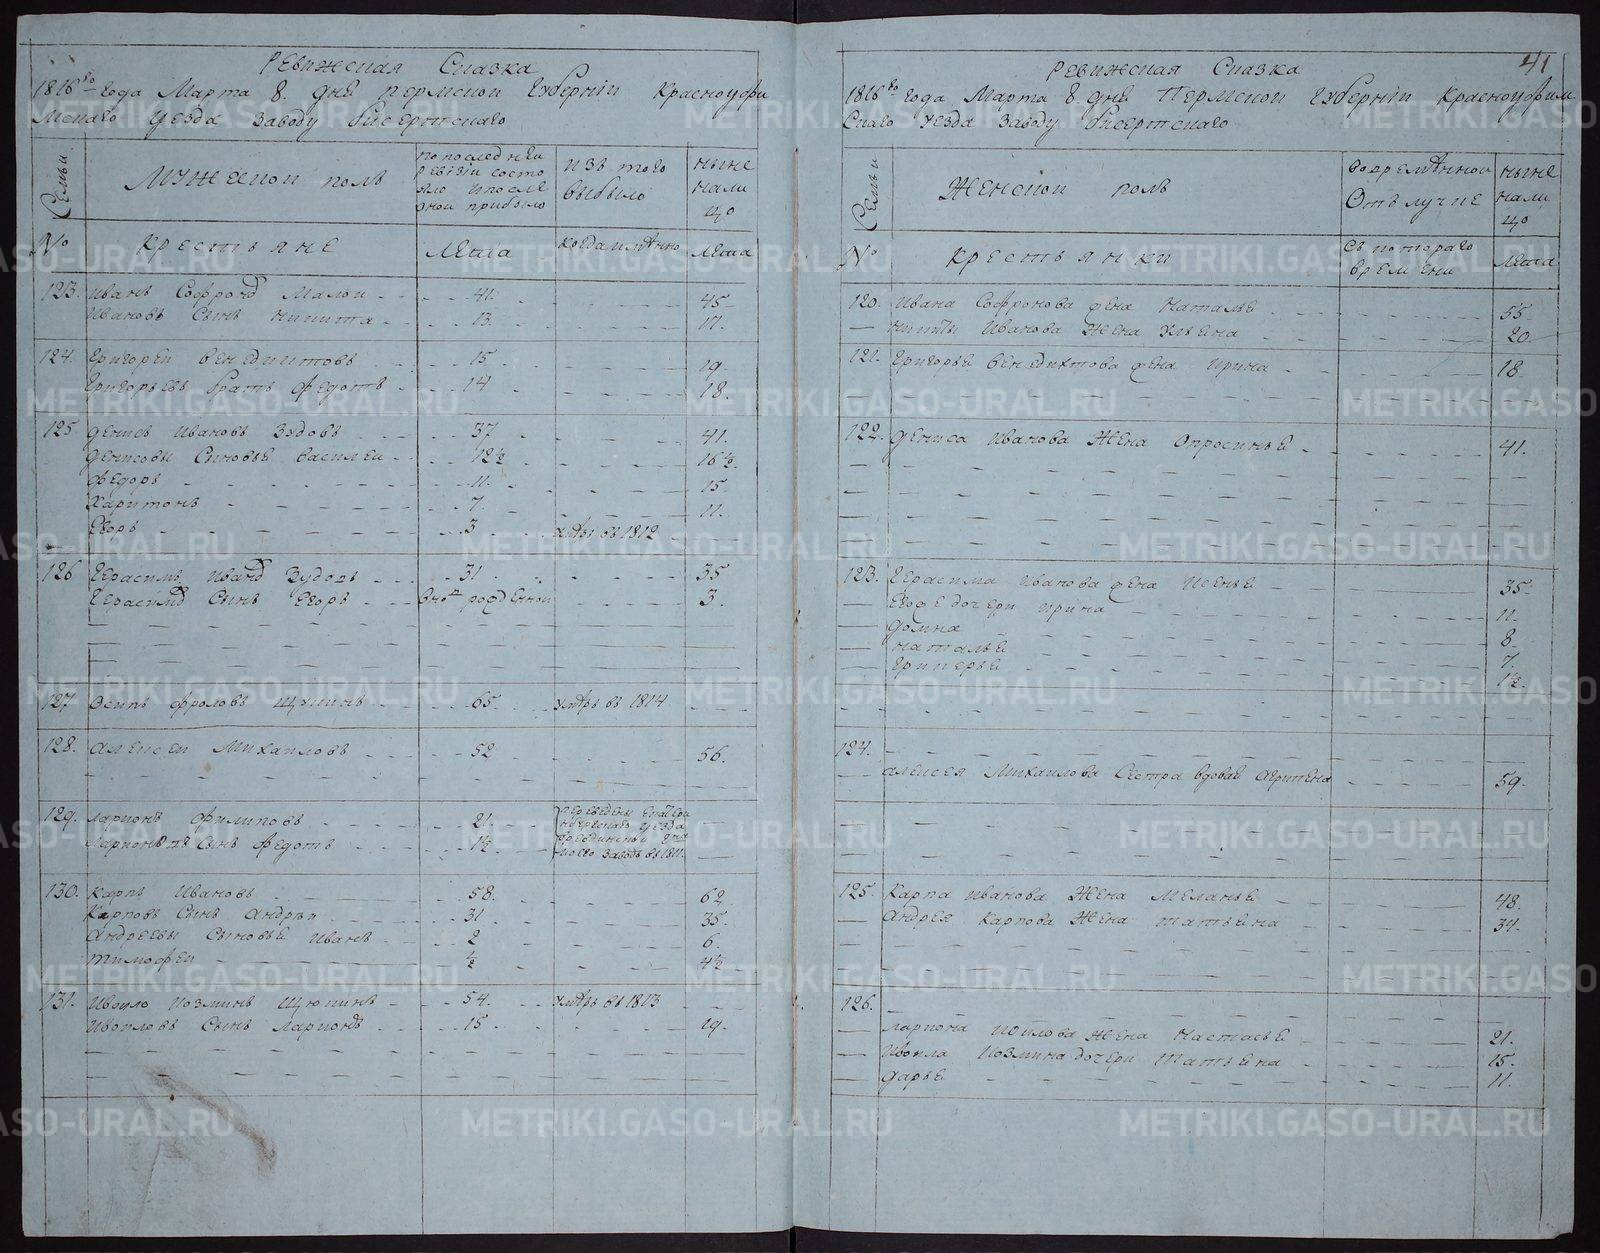 Ревижская Сказка
1816го года Марта 8. дня Пермской Губернiи Красноуфи
мскаго уезда заводу Бисертскаго
Семьи
Мужеской полъ
по последней
ревизiи состо
яло и после
оной прибыло
изъ того
выбыло
ныне
нали
цо
№
крестьяне
лета
когда имянно
лета
123. Иванъ Софронов Малои 41. 45
Ивановъ сынъ Никита 13. 17.
124. Григореи Венедиктовъ 15 19
Григорьевъ братъ Федотъ 14 18.
125 Денисъ Ивановъ Зудовъ 37 41.
Денисовы сыновье Василеи 12½ 16½.
Федоръ 11. 15
Харитонъ 7. 11.
Егоръ 3 умеръ въ 1812
126 Герасимъ Иванов Зудовъ 31 35
Герасимов сынъ Егоръ вновь рожденной 3.
127 Осипъ Фроловъ Щукинъ 65 умеръ въ 1814
128. Алексеи Михаиловъ 52 56.
129. Ларионъ Филиповъ 21.
Ларионовъ сынъ Федотъ 1½
130. Карпъ Ивановъ 58. 62
Карповъ сынъ Андреи 31 35.
Андреевы сыновье Иванъ 2 6.
Тимофеи ½ 4½
131. Ивоило Козминъ Щюкинъ 54. умеръ въ 1813
Ивоиловъ сынъ Ларионъ 15 19.
41
Ревижская Сказка
1816го года Марта 8. дня Пермской Губернiи Красноуфим
скаго уезда заводу Бисертскаго
Семьи
Женской полъ
Вовремянной
отълучке
ныне
нали
цо
№
крестьянки
съ котораго
времени
лета
120. Ивана Софронова жена Наталье 55
Никиты Иванова жена Ульена 20
121. Григорье Венедихтова жена Ирина 18
122. Дениса Иванова жена Опросинье 41.
123. Герасима Иванова жена Исенье 35
Его же дочери Ирина 11.
Домна 8.
Наталье 7.
1½.
124.
Алексея Михаилова сестра вдовае Агрипена 59.
125. Карпа Иванова жена Меланье 48.
Андрея Карпова жена Татьена 34.
126.
Лариона Ивоилова жена Настасье 21.
Ивоила Козмина дочери Татьена 15.
Дарье 11.
METRIKI.GASO-URAL.RU